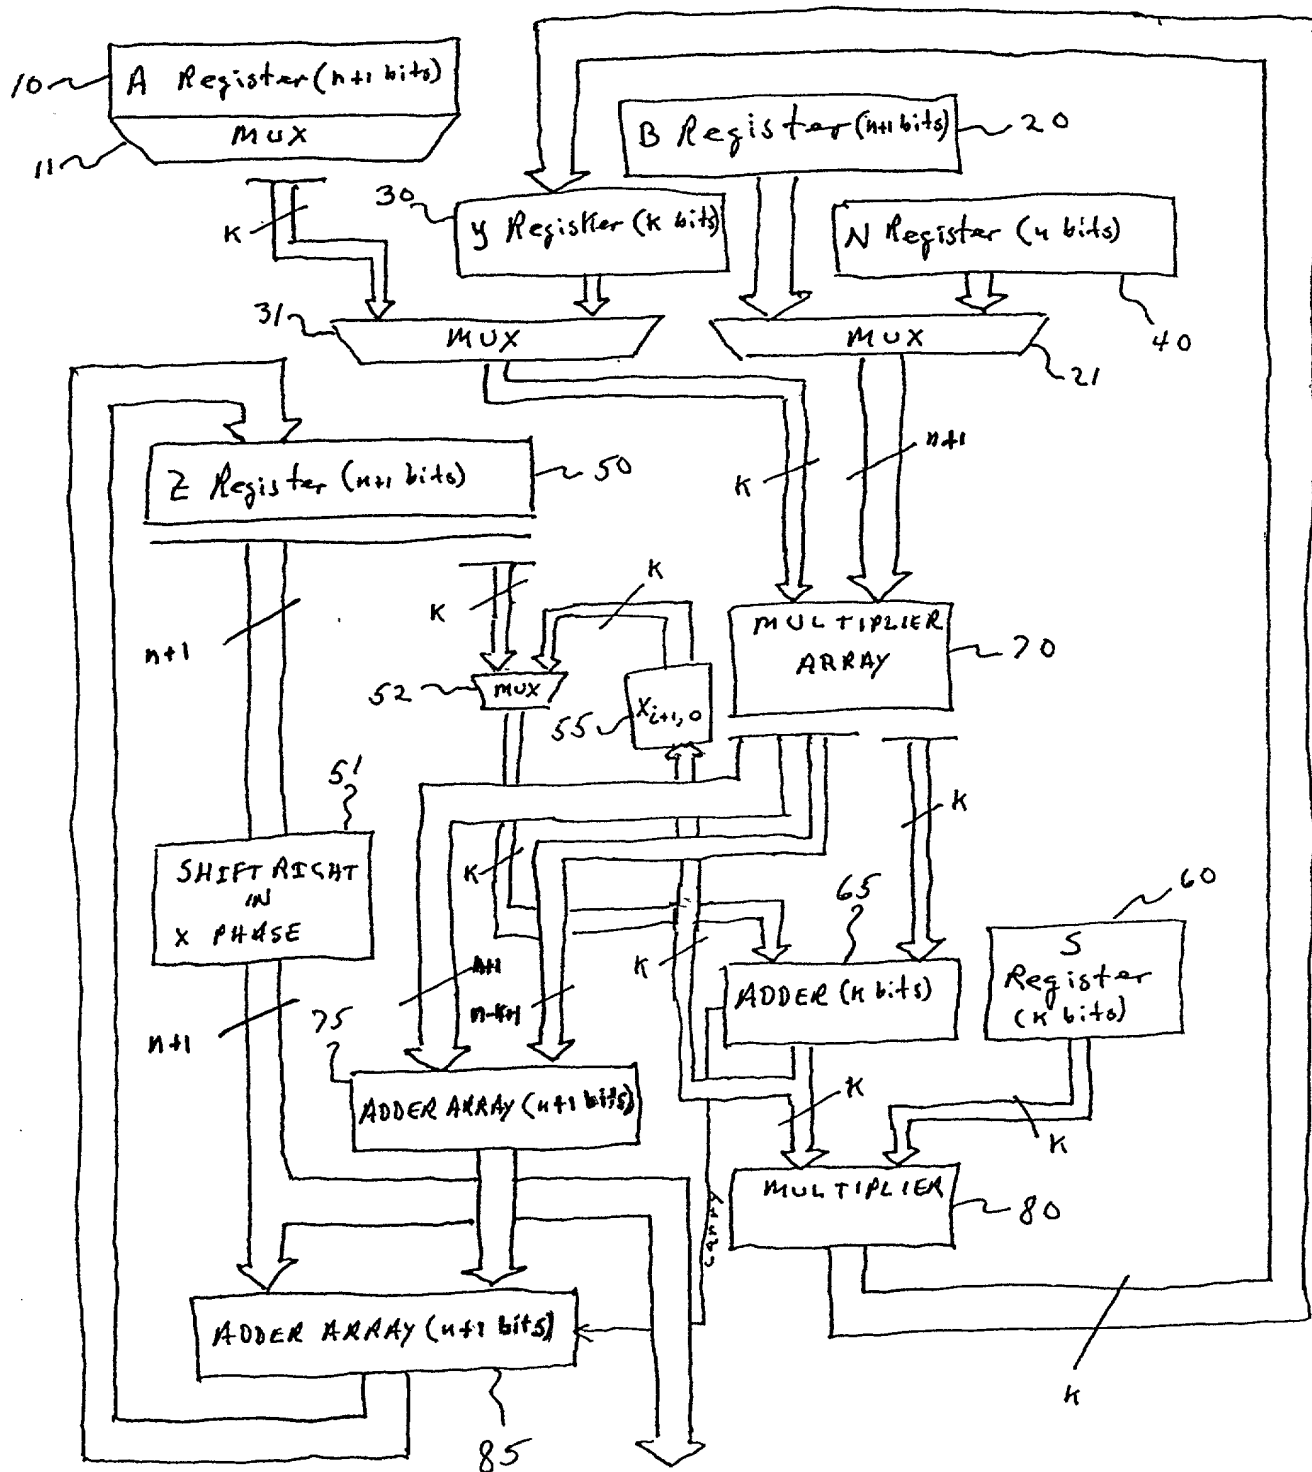 10
A Register (n+1 bits)
MUX
11
K
B Register (n+1 bits)
20
30
Y Register (K bits)
N Register (n bits)
40
31
MUX
MUX
21
K
n+1
Z Register (n+1 bits)
50
K
K
n+1
MULTIPLIER
ARRAY
70
52
MUX
55
X i+1, 0
51
SHIFT RIGHT
IN
X PHASE
K
K
65
60
S
Register
(K bits)
n+1
n-k+1
K
ADDER (K bits)
n+1
75
ADDER ARRAY (n+1 bits)
K
K
MULTIPLIER
80
carry
ADDER ARRAY (n+1 bits)
85
K